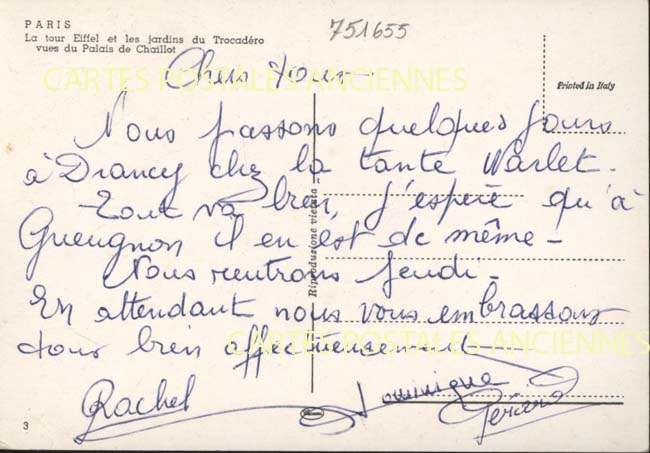 PARIS
La tour Eiffel et les jardins du Trocadéro
vues du Palais de Chaillot
751655
CARTES POSTALES ANCIENNES
Chers tous -
Printed in Italy
Nous passons quelques jours
à Drancy chez la tante Warlet.
Tout va bien, j'espère qu'à
Gueugnon il en est de même -
Nous rentrons Jeudi -
En attendant nous vous embrassons
tous bien affectueusement
CARTES POSTALES ANCIENNES
Riproduzione vietata
Rachel
Dominique
3